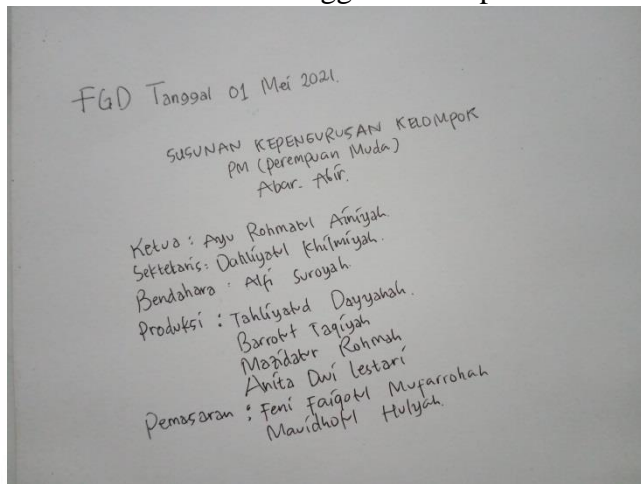 FGD Tanggal 01 Mei 2021.
SUSUNAN KEPENGURUSAN KELOMPOK
PM (Perempuan Muda)
Abar-Abir.
Ketua : Ayu Rohmatul Ainiyah
Sektetaris : Dahliyatul Khilmiyah.
Bendahara : Alfi Suroyah.
Produksi : Tahliyatud Dayyanah.
Barrotut Taqiyah
Mazidatur Rohmah
Anita Dwi Lestari
Pemasaran : Feni Faiqotul Mufarrohah
Mavidhotul Hulyah.